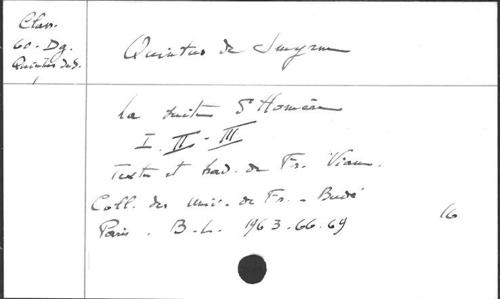 Class.
60. Dg.
Quintus de S.
Quintus de Smyrne
La suite d'Homère
I. II - III
Texte et trad. de Fr. Vian.
Coll. des Univ. de Fr. - Budé
Paris. B.L. 1963.66.69
16